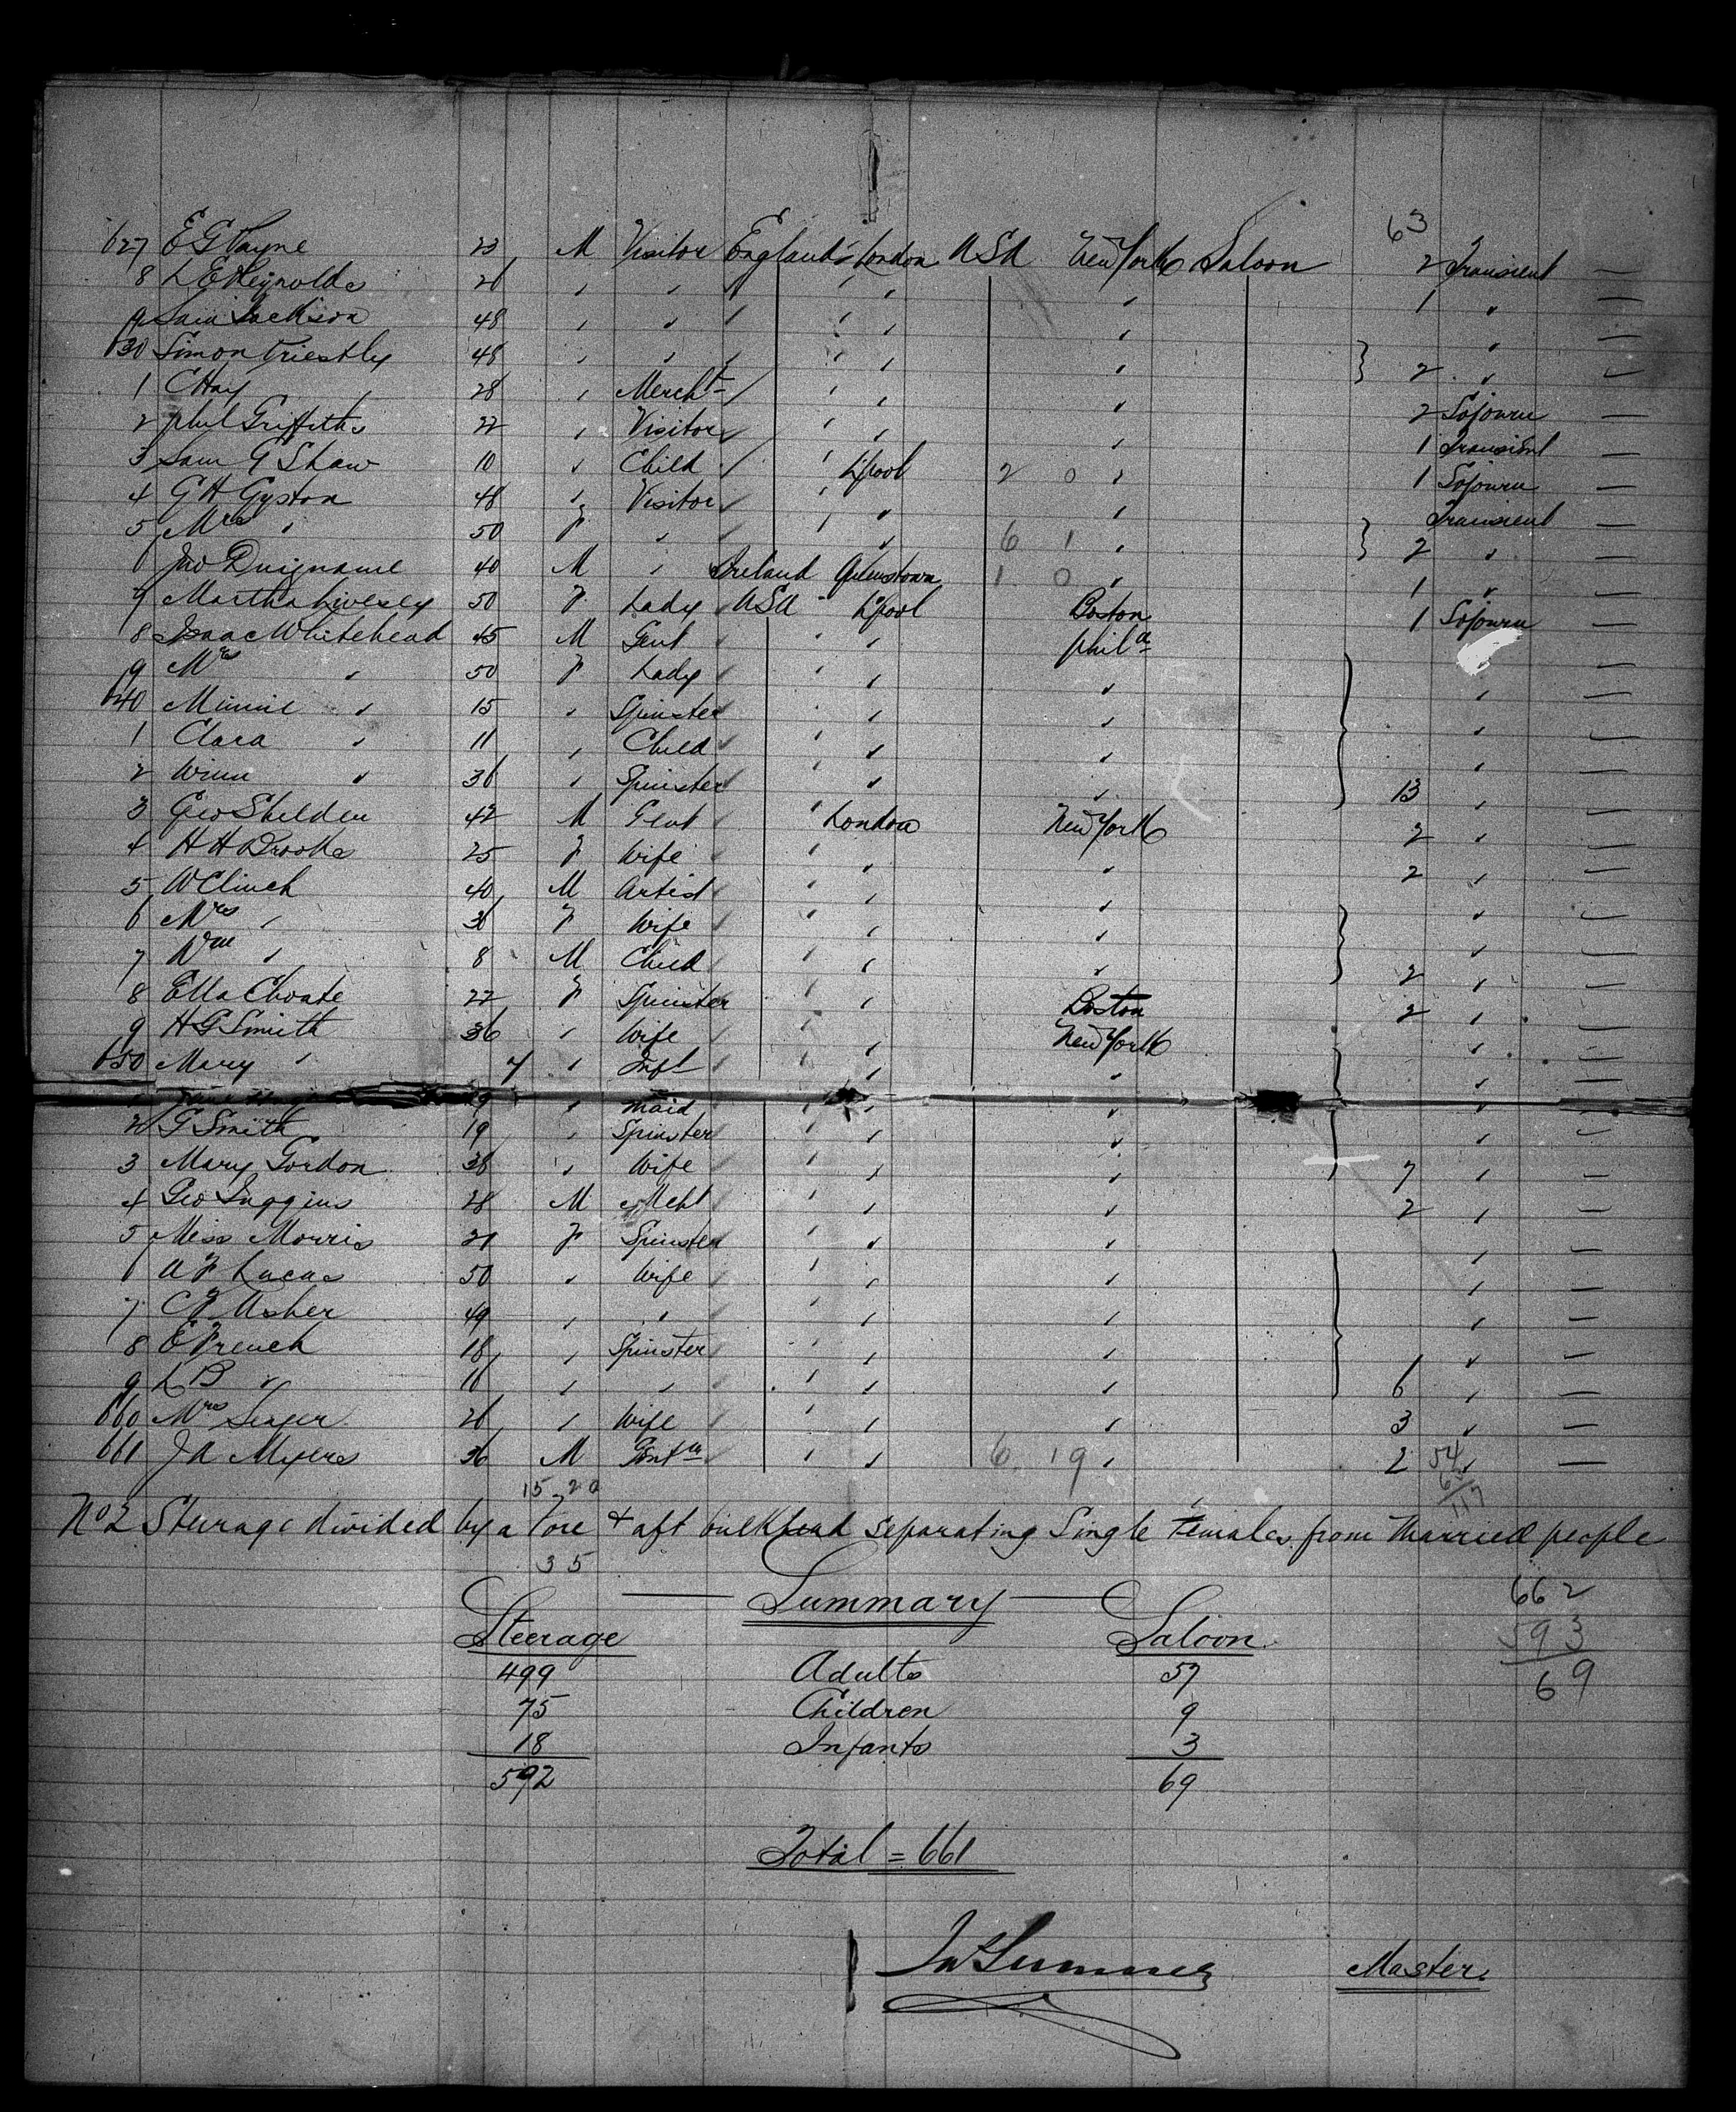 63
627 E G Payne 23 M Visitor England London USA New York Saloon 2 Transient —
8 L E Reynolds 26 " " " " " " 1 " —
9 Jackson 48 " " " " " " " —
630 Simon Priestly 48 " " " " " " } 2 " —
1 C Hay 28 " Mercht " " " " 2 Sojourn —
2 Phil Griffiths 22 " Visitor " " " " 1 Transient —
3 Sam G Shaw 10 " Child " L'pool 2 0 " 1 Sojourn —
4 G H Gyston 48 " Visitor " " " Transient —
5 Mrs " 50 F " " " 6 1 " } 2 " —
6 Jno Duigname 40 M " Ireland Queenstown 1 0 " 1 " —
7 Martha Livesey 50 F Lady USA L'pool Boston 1 Sojourn —
8 Isaac Whitehead 45 M Gent " " Phila —
9 Mrs " 50 F Lady " " " " —
640 Minnie " 15 " Spinster " " " " —
1 Clara " 11 " Child " " " " —
2 Winn " 36 " Spinster " " " } 13 " —
3 Geo Shelden 42 M Gent " London New York 2 " —
4 H H Brooks 25 F Wife " " " 2 " —
5 W Clinch 40 M Artist " " " " —
6 Mrs " 36 F Wife " " " " —
7 Wm " 8 M Child " " " } 2 " —
8 Ella Choate 22 F Spinster " " Boston 2 " —
9 H G Smith 36 " Wife " " New York " —
650 Mary " 7 " Inft " " " " —
" Maid " " " " —
2 G Smith 19 " Spinster " " " " —
3 Mary Gordon 38 " Wife " " " } 7 " —
4 Geo Inggins 28 M Mcht " " " 2 " —
5 Miss Morris 21 F Spinster " " " " —
6 A F Lucas 50 " Wife " " " " —
7 C F Usher 49 " " " " " " —
8 E French 18 " Spinster " " " " —
9 L B " 16 " " " " " } 6 " —
660 Mrs 26 " Wife " " " 3 " —
661 J A Myers 36 M Gentn " " 6 19 " 2 54 " —
63
117
15 20
No 2 Steerage divided by a Fore & aft bulkhead separating Single Females from Married people
35
Summary
662
593
69
Steerage Saloon
499 Adults 57
75 Children 9
18 Infants 3
592 69
Total = 661
Master